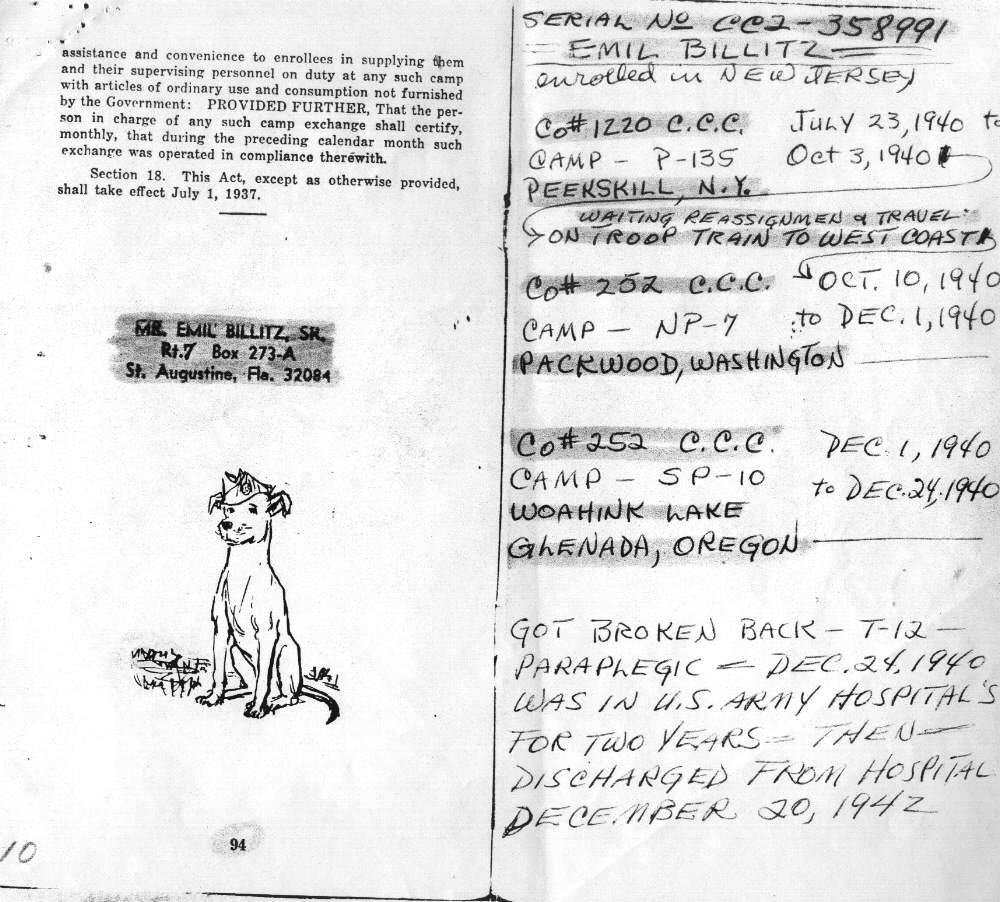 assistance and convenience to enrollees in supplying them
and their supervising personnel on duty at any such camp
with articles of ordinary use and consumption not furnished
by the Government: PROVIDED FURTHER, That the per-
son in charge of any such camp exchange shall certify,
monthly, that during the preceding calendar month such
exchange was operated in compliance therewith.
Section 18. This Act, except as otherwise provided,
shall take effect July 1, 1937.
MR. EMIL BILLITZ, SR.
Rt.7 Box 273-A
St. Augustine, Fla. 32084
94
10
SERIAL No CC2-358991
EMIL BILLITZ
enrolled in NEW JERSEY
Co# 1220 C.C.C. JULY 23, 1940 to
CAMP - P-135 Oct 3, 1940
PEEKSKILL, N.Y.
WAITING REASSIGNMEN & TRAVEL:
ON TROOP TRAIN TO WEST COAST
Co# 252 C.C.C. OCT. 10, 1940
CAMP - NP-7 to DEC. 1, 1940
PACKWOOD, WASHINGTON
Co# 252 C.C.C. DEC. 1, 1940
CAMP - SP-10 to DEC. 24, 1940
WOAHINK LAKE
GLENADA, OREGON
GOT BROKEN BACK - T-12 -
PARAPLEGIC = DEC. 24, 1940
WAS IN U.S. ARMY HOSPITAL'S
FOR TWO YEARS = THEN -
DISCHARGED FROM HOSPITAL
DECEMBER 20, 1942